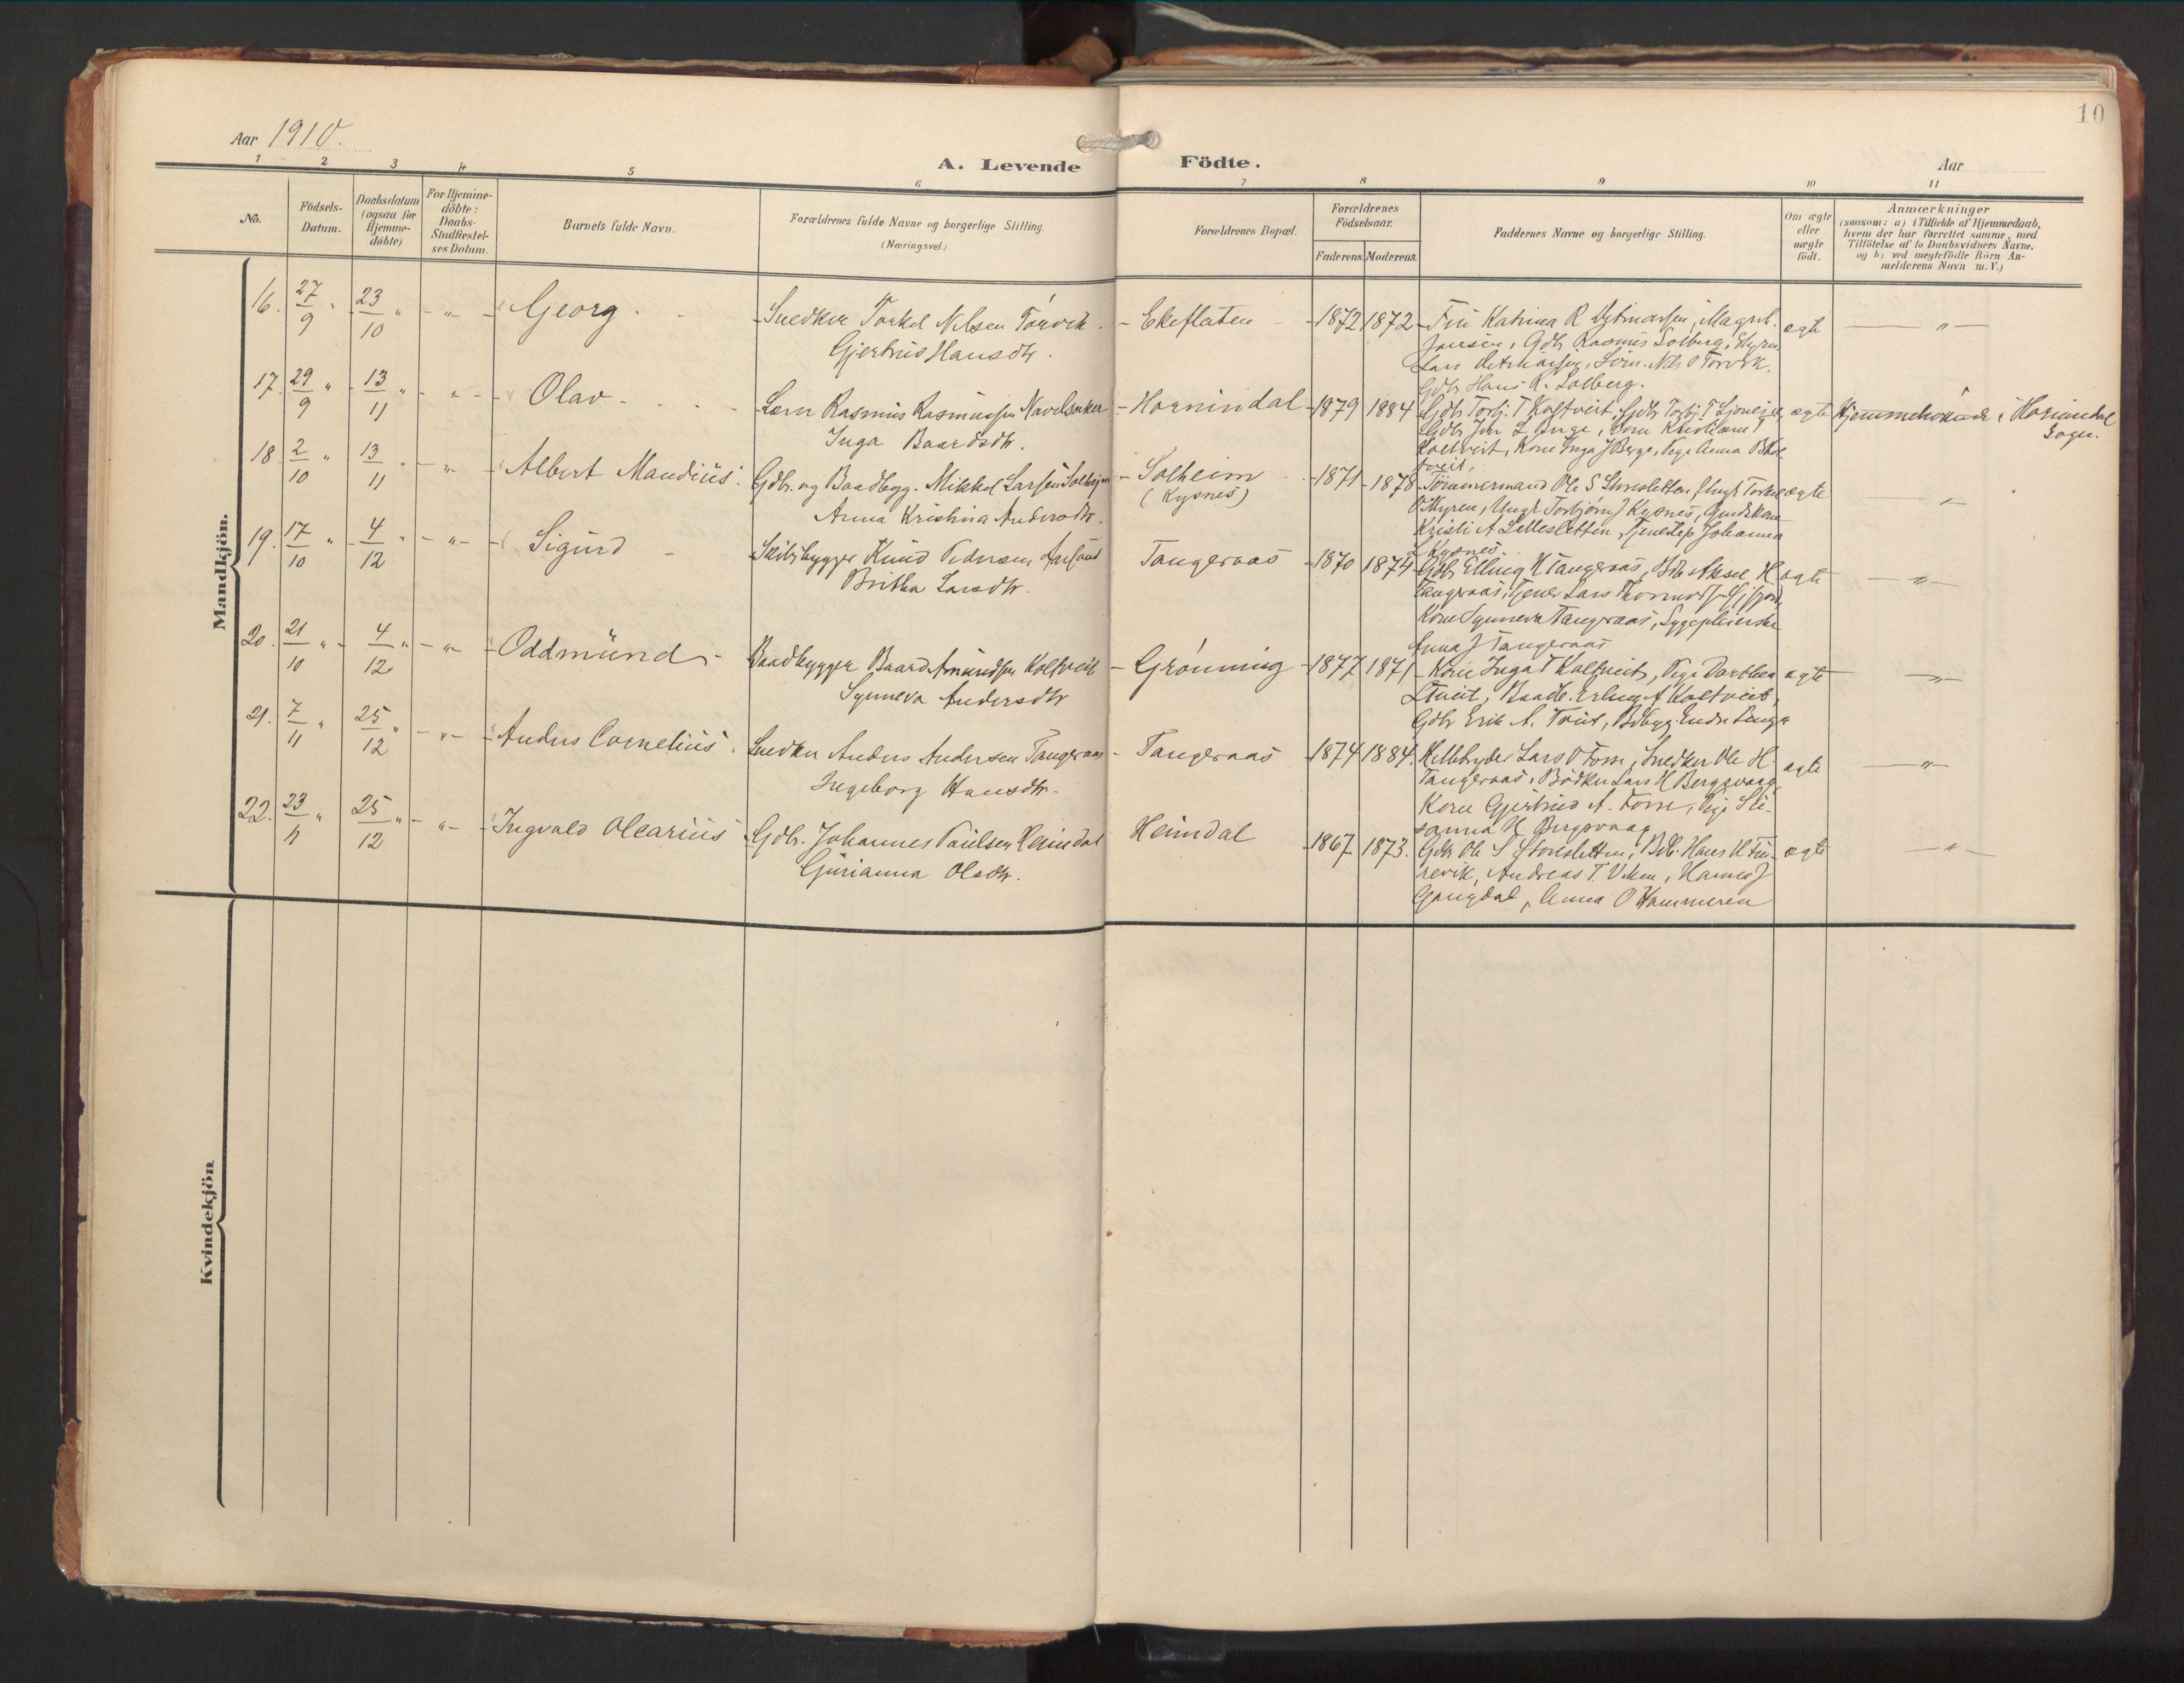 10
Aar 1910.
A. Levende Födte.
Aar
1 2 3 4 5 6 7 8 9 10 11
No.
Födsels-
Datum.
Daabsdatum
(ogsaa for
Hjemme-
döbte)
For Hjemme-
döbte:
Daabs-
Stadfæstel-
ses Datum.
Barnets fulde Navn.
Forældrenes fulde Navne og borgerlige Stilling.
(Næringsvei.)
Forældrenes Bopæl.
Forældrenes
Födselsaar.
Faderens. Moderens.
Faddernes Navne og borgerlige Stilling.
Om ægte
eller
uægte
födt.
Anmærkninger
(saasom: a) i Tilfælde af Hjemmedaab,
hvem der har forrettet samme, med
Tilföielse af to Daabsvidners Navne,
og b) ved uægtefödte Börn An-
melderens Navn m. V.)
Mandkjön.
16. 27/9 " 23/10 " - " - Georg.
Snedker Torkel Nilsen Torvik.
Gjertrud Hansdtr.
Ekeflaten 1872 1872
Fru Katrina R Ditmarsen, Magnh.
Jansen, Gdbr Rasmus Solberg,
Lars Ditmarsen, Nils O Torvik,
Gdbr Hans R. Solberg.
ægte - " -
17. 29/9 " 13/11 " - " - Olav
Rasmus Rasmussen Navelsaker
Inga Baardsdtr.
Hornindal 1879 1884
Gdbr Torbj. T Koltveit, Gdbr Torbj. T
Gdbr Jon L Berge, Kone Kristiane T
Koltveit, Kone Inga J Berge, Pige Anna B Kol-
tveit.
ægte
Hjemmehørende i Hornindal
Sogn.
18. 2/10 " 13/11 " - " - Albert Maudius.
Gdbr. og Baadbygg. Mikkel Larsen Solheim
Anna Kristina Andersdtr.
Solheim
(Kysnes)
1871 1878
Tömmermand Ole S Storesletten, Ungk Torkel
O Myren, Ungk Torbjørn J Kysnes, Gaardskone
Kristi A Lillesletten, Johanna
L Kysnes.
ægte
19. 17/10 " 4/12 " - " - Sigurd
Skibsbygger Knud Pedersen
Britha Larsdtr.
Tangeraas 1870 1874
Gdbr Elling H Tangeraas, Aksel H
Tangeraas, Lars
Kone Synneva Tangeraas, Sygepleierske
Anna J Tangeraas
ægte - " -
20. 21/10 " 4/12 " - " - Oddmund
Baadbygger Baard Amundsen Koltveit
Synneva Andersdtr
Grønning 1877 1871
Kone Inga T Koltveit, Pige Dorthea
Tveit, Baadb. Erling A Koltveit,
Gdbr Erik A. Tveit, Bdbygg. Endre
ægte - " -
21. 7/11 " 25/12 " - " - Anders Cornelius.
Snedker Anders Andersen Tangeraas
Ingeborg Hansdtr.
Tangeraas 1874 1884.
Lars O Fosse, Snedker Ole H
Tangeraas, Bödker Lars H Bergsvaag,
Kone Gjertrud A. Fosse, Pige Su-
sanna H Bergsvaag
ægte - " -
22. 23/11 " 25/12 " - " - Ingvald Olearius
Gdbr. Johannes Paulsen Heimdal
Gurianna Olsdtr.
Heimdal 1867 1873.
Gdbr Ole S Storesletten, Hans H
revik, Andreas T. Viken, Hanna J
Gangdal, Anna O Hammeren
ægte - " -
Kvindekjön